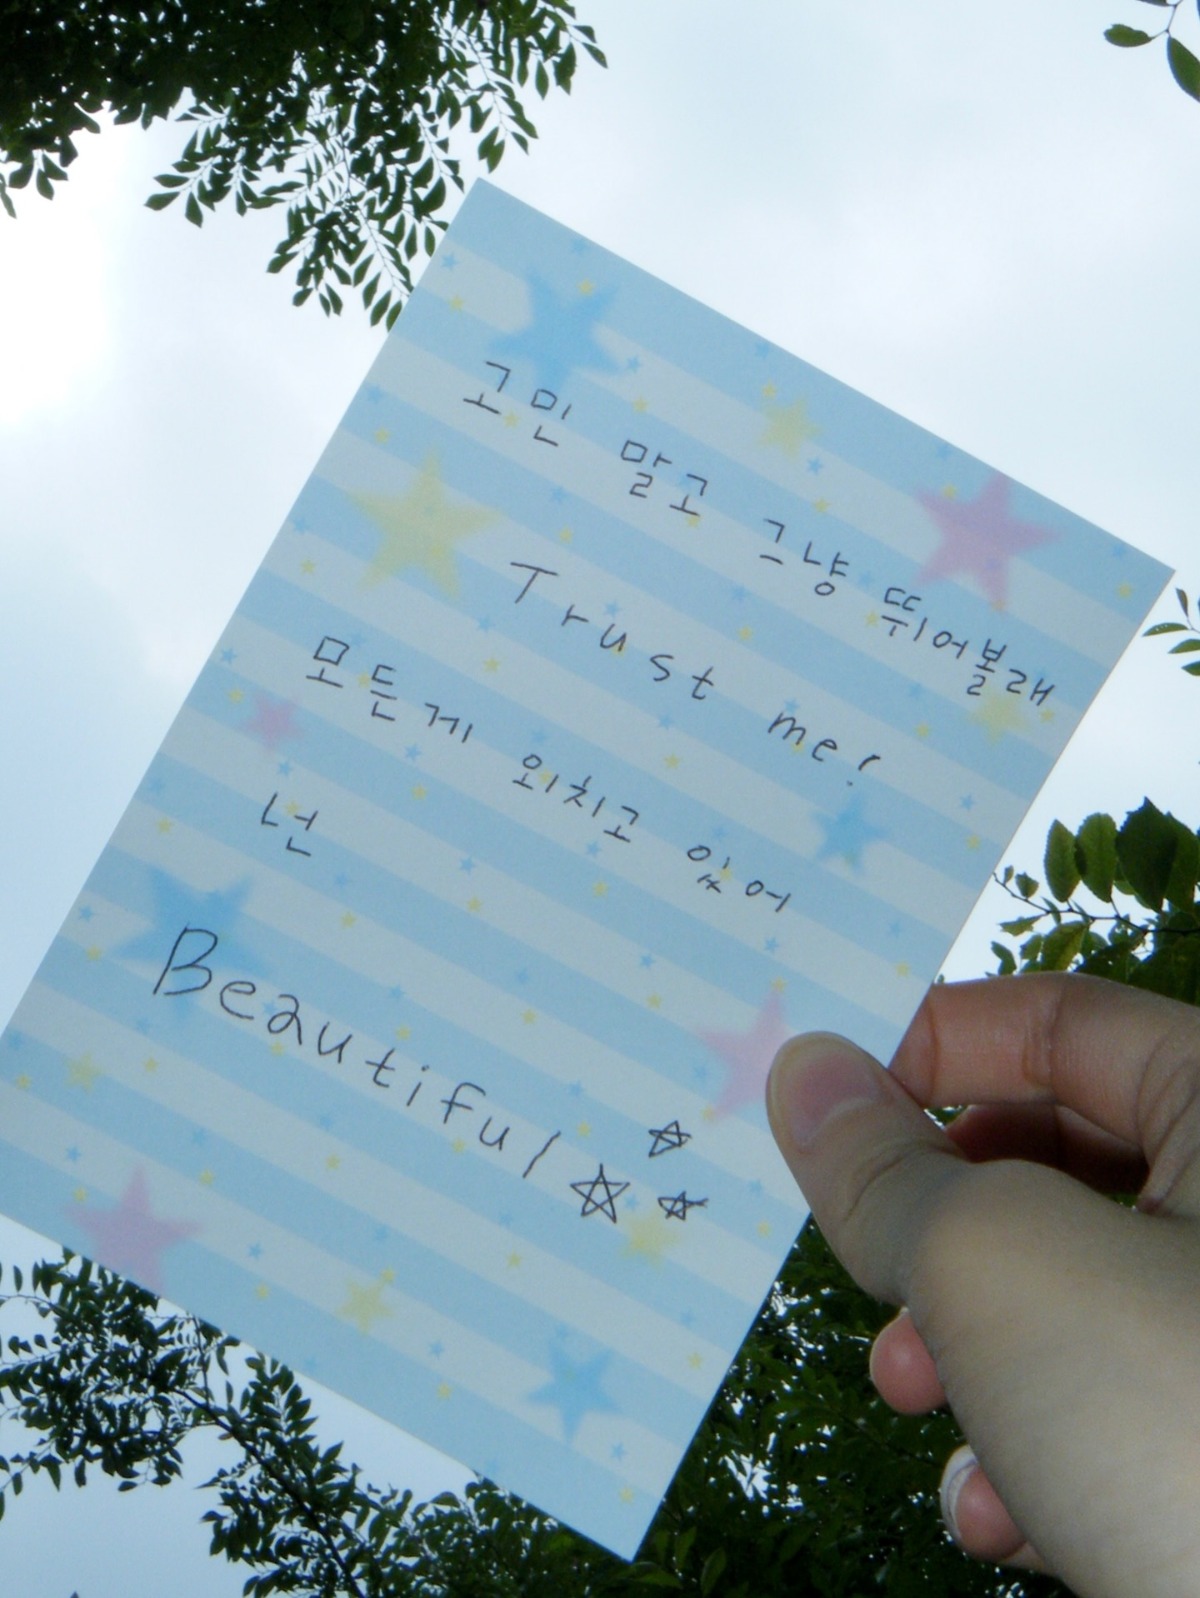 고민 말고 그냥 뛰어볼래
Trust me!
모든게 외치고 있어
넌
Beautiful